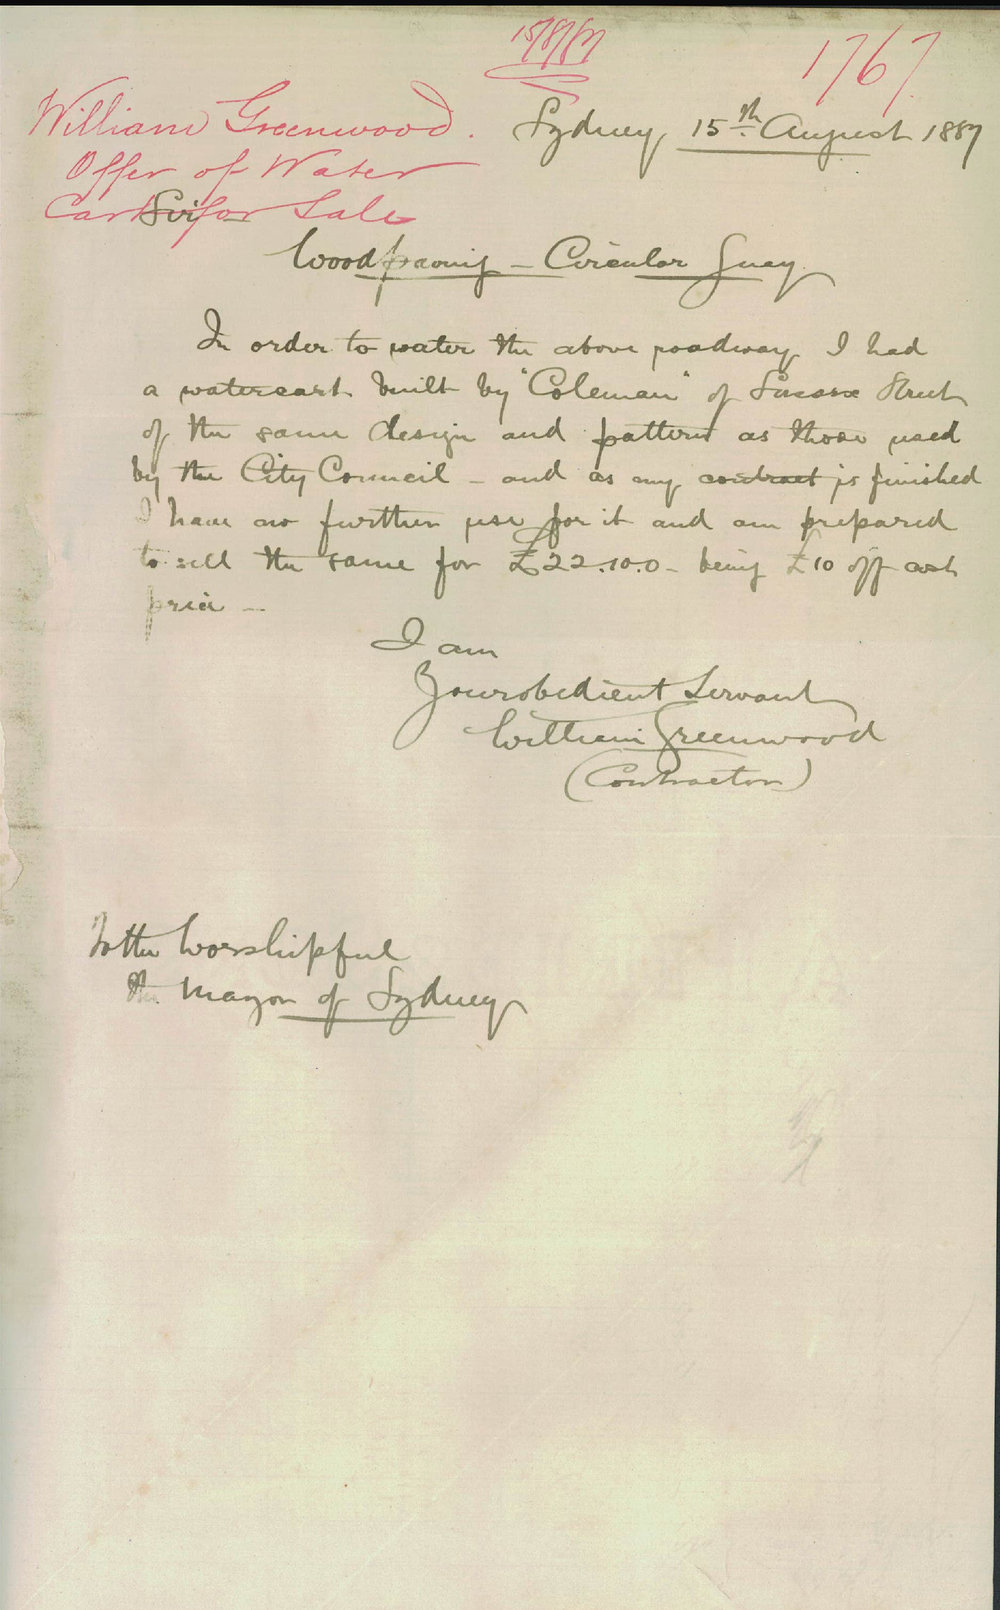 15/8/87
1767
William Greenwood.
Offer of Water
Cart for Sale
Sydney 15th August 1887
Sir
Woodpaving – Circular Quay.
In order to water the above roadway I had
a watercart built by "Coleman" of Sussex Street
of the same design and pattern as those used
by the City Council – and as my contract is finished
I have no further use for it and am prepared
to sell the same for £22.10.0 – being £10 off cost
price –
I am
Your obedient Servant
William Greenwood
(Contractor)
To the Worshipful
the Mayor of Sydney